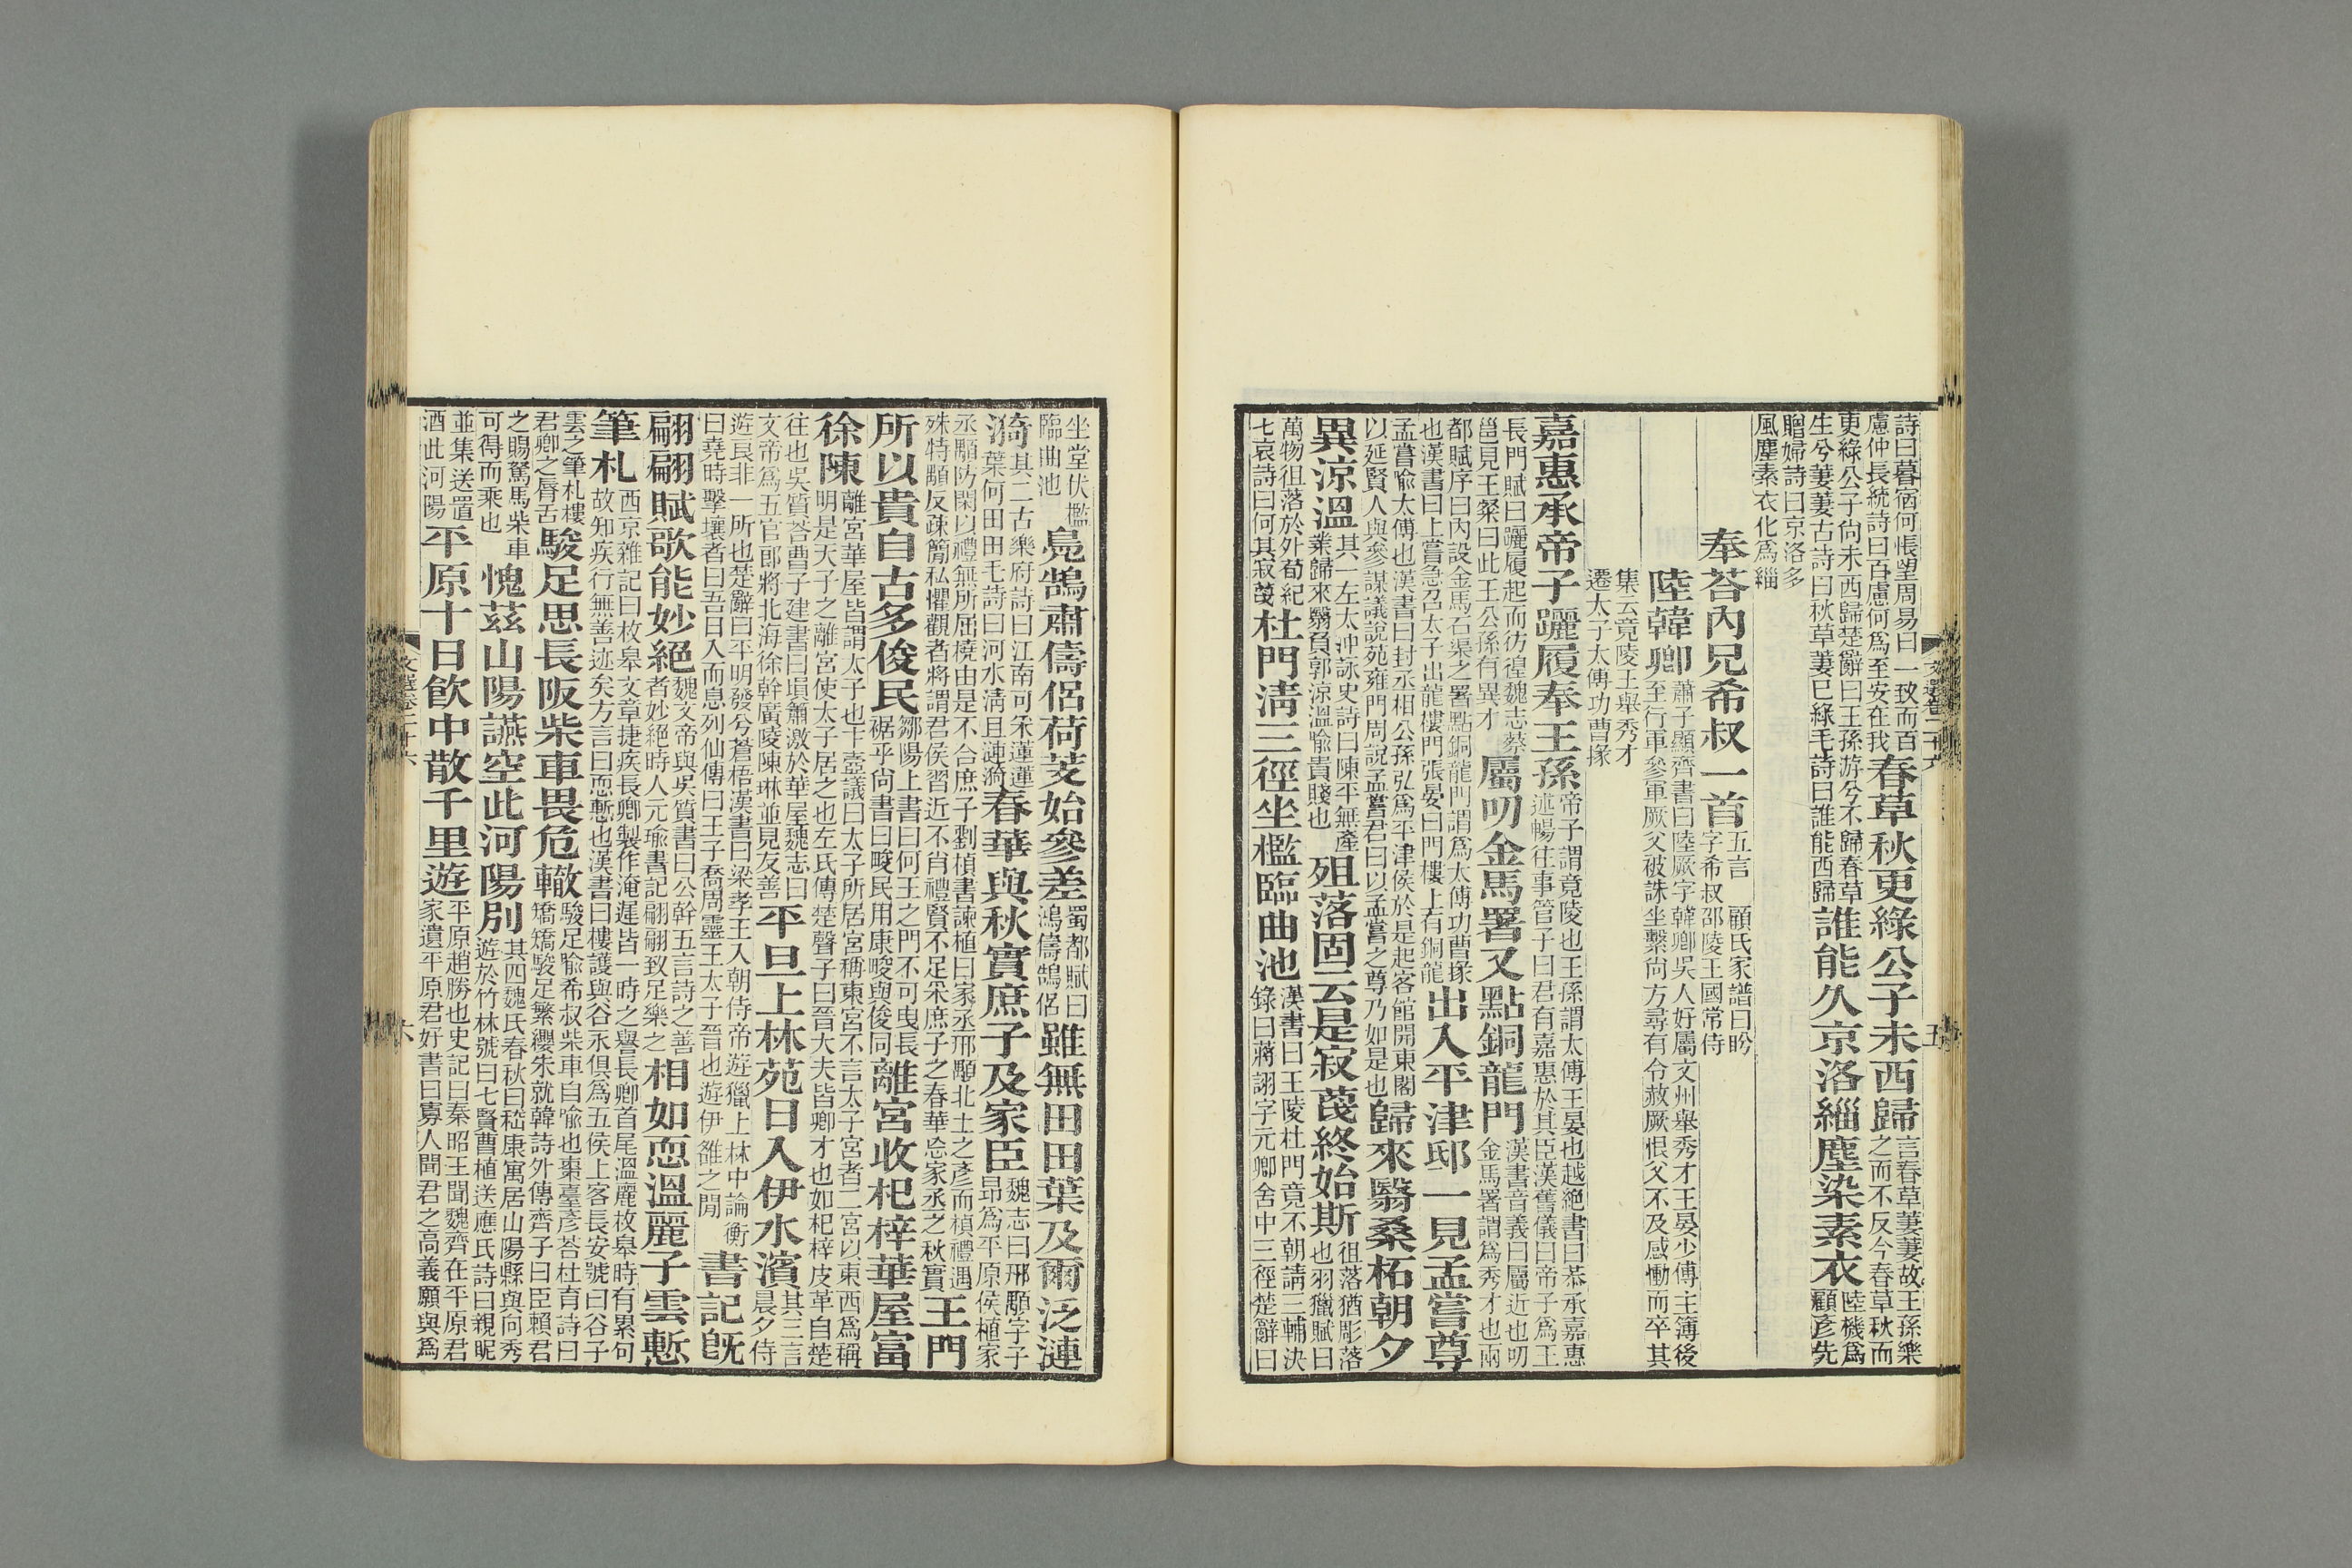 詩曰暮宿何悵望周易曰一致而百
慮仲長統詩曰百慮何爲至安在我
春草秋更綠公子未西歸
言春草萋萋故王孫樂
之而不反今春草秋而
更綠公子尚未西歸楚辭曰王孫游兮不歸春草
生兮萋萋古詩曰秋草萋已綠毛詩曰誰能西歸
誰能久京洛緇塵染素衣
陸機爲
顧彥先
贈婦詩曰京洛多
風塵素衣化爲緇
奉荅內兄希叔一首
五言　顧氏家譜曰盻
字希叔邵陵王國常侍
陸韓卿
蕭子顯齊書曰陸厥字韓卿吳人好屬文州舉秀才王晏少傅主簿後
至行軍參軍厥父被誅坐繫尚方尋有令赦厥恨父不及感慟而卒其
集云竟陵王舉秀才
遷太子太傅功曹掾
嘉惠承帝子躧履奉王孫
帝子謂竟陵也王孫謂太傅王晏也越絕書曰恭承嘉惠
述暢往事管子曰君有嘉惠於其臣漢舊儀曰帝子爲王
長門賦曰躧履起而彷徨魏志蔡
邕見王粲曰此王公孫有異才
屬叨金馬署又點銅龍門
漢書音義曰屬近也叨
金馬署謂爲秀才也兩
都賦序曰內設金馬石渠之署點銅龍門謂爲太傅功曹掾
也漢書曰上嘗急召太子出龍樓門張晏曰門樓上有銅龍
出入平津邸一見孟嘗尊
孟嘗喻太傅也漢書曰封丞相公孫弘爲平津侯於是起客館開東閣
以延賢人與參謀議說苑雍門周說孟嘗君曰以孟嘗之尊乃如是也
歸來翳桑柘朝夕
異涼溫
其一左太沖詠史詩曰陳平無產
業歸來翳負郭涼溫喻貴賤也
殂落固云是寂蔑終始斯
徂落猶彫落
也羽獵賦曰
萬物徂落於外荀紀
七哀詩曰何其寂蔑
杜門淸三徑坐檻臨曲池
漢書曰王陵杜門竟不朝請三輔決
錄曰蔣詡字元卿舍中三徑楚辭曰
坐堂伏檻
臨曲池
鳧鵠肅儔侶荷芰始參差
蜀都賦曰
鴻儔鵠侶
雖無田田葉及爾泛漣
漪
其二古樂府詩曰江南可采蓮蓮
葉何田田毛詩曰河水淸且漣漪
春華與秋實庶子及家臣
魏志曰邢顒字子
昂爲平原侯植家
丞顒防閑以禮無所屈橈由是不合庶子劉楨書諫植曰家丞邢顒北土之彥而楨禮遇
殊特顒反疎簡私懼觀者將謂君侯習近不肖禮賢不足采庶子之春華忘家丞之秋實
王門
所以貴自古多俊民
鄒陽上書曰何王之門不可曳長
裾乎尚書曰畯民用康畯與俊同
離宮收杞梓華屋富
徐陳
離宮華屋皆謂太子也干壼議曰太子所居宮稱東宮不言太子宮者二宮以東西爲稱
明是天子之離宮使太子居之也左氏傳楚聲子曰晉大夫皆卿才也如杞梓皮革自楚
往也吳質荅曹子建書曰塤簫激於華屋魏志曰
文帝爲五官郎將北海徐幹廣陵陳琳並見友善
平旦上林苑日入伊水濱
其三言
晨夕侍
遊良非一所也楚辭曰平明發兮蒼梧漢書曰梁孝王入朝侍帝遊獵上林中論衡
曰堯時擊壤者曰吾日入而息列仙傳曰王子喬周靈王太子晉也遊伊雒之閒
書記旣
翩翩賦歌能妙絕
魏文帝與吳質書曰公幹五言詩之善
者妙絕時人元瑜書記翩翩致足樂之
相如恧溫麗子雲慙
筆札
西京雜記曰枚皋文章捷疾長卿製作淹遲皆一時之譽長卿首尾溫麗枚皋時有累句
故知疾行無善迹矣方言曰恧慙也漢書曰樓護與谷永俱爲五侯上客長安號曰谷子
雲之筆札樓
君卿之脣舌
駿足思長阪柴車畏危轍
駿足喻希叔柴車自喻也棗臺彥荅杜育詩曰
矯矯駿足繁纓朱就韓詩外傳齊子曰臣賴君
之賜駑馬柴車
可得而乘也
愧茲山陽讌空此河陽別
其四魏氏春秋曰嵇康寓居山陽縣與向秀
遊於竹林號曰七賢曹植送應氏詩曰親昵
並集送置
酒此河陽
平原十日飮中散千里遊
平原趙勝也史記曰秦昭王聞魏齊在平原君
家遺平原君好書曰寡人聞君之高義願與爲
文選卷二十六
六